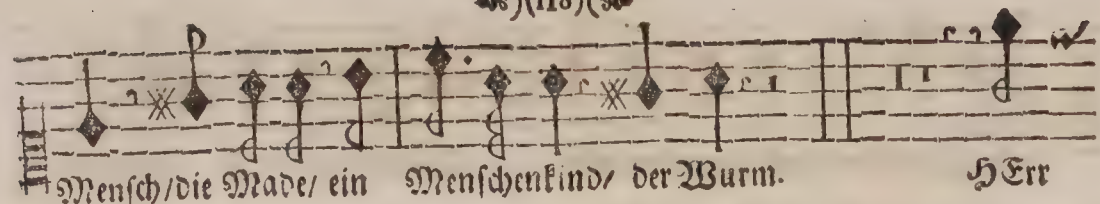 )(118)(
Mensch/die Made/ ein Menschenkind/ der Wurm. HErr